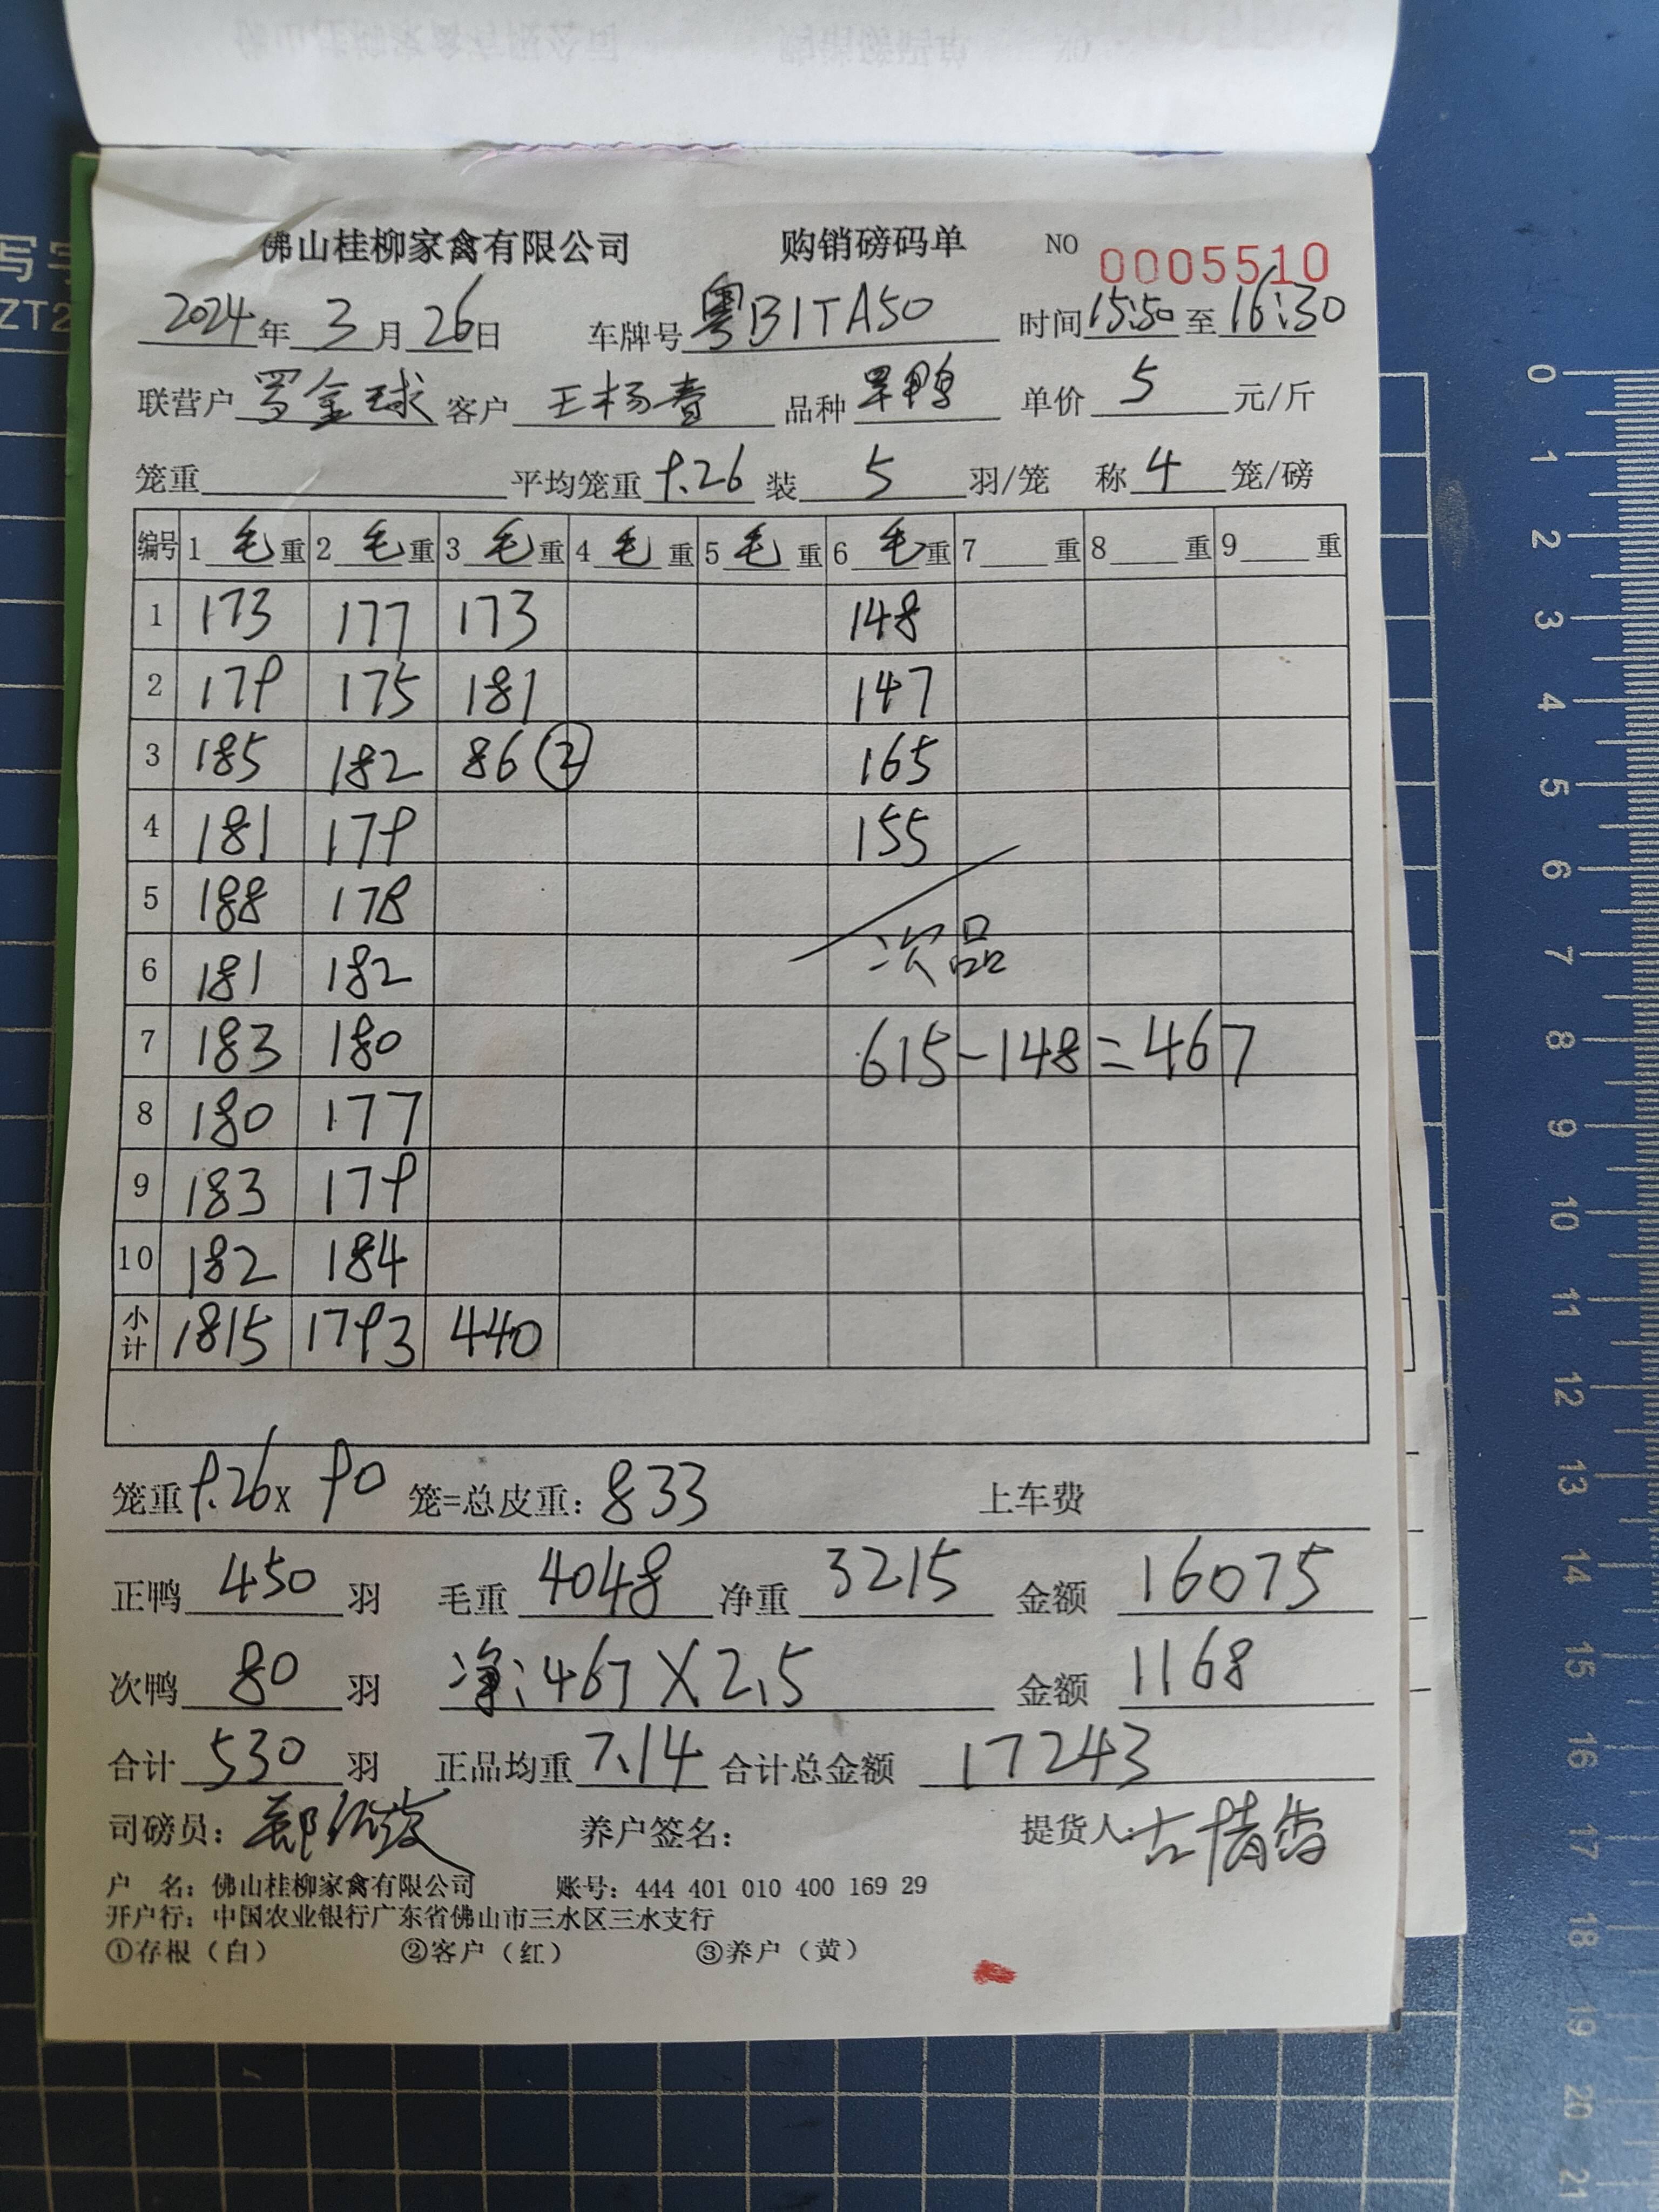 佛山桂柳家禽有限公司 购销磅码单 NO 0005510
2024年3月26日 车牌号粤B1TA50 时间15:50至16:30
联营户罗金球 客户王杨青 品种旱鸭 单价5元/斤
笼重 平均笼重9.26 装5羽/笼 称4笼/磅
编号 1毛重 2毛重 3毛重 4毛重 5毛重 6毛重 7重 8重 9重
1 173 177 173 148
2 179 175 181 147
3 185 182 86② 165
4 181 179 155
5 188 178
6 181 182 次品
7 183 180 615-148=467
8 180 177
9 183 179
10 182 184
小计 1815 1793 440
笼重9.26x90笼=总皮重：833 上车费
正鸭450羽 毛重4048 净重3215 金额16075
次鸭80羽 净:467X2.5 金额1168
合计530羽 正品均重7.14 合计总金额17243
司磅员： 养户签名： 提货人:
户 名：佛山桂柳家禽有限公司 账号：444 401 010 400 169 29
开户行：中国农业银行广东省佛山市三水区三水支行
①存根（白） ②客户（红） ③养户（黄）
0
1
2
3
4
5
6
7
8
9
10
11
12
13
14
15
16
17
18
19
20
21